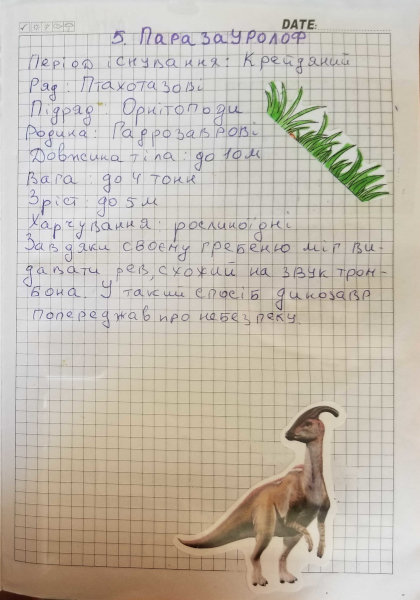 DATE:
5. Паразауролоф
Період існування: Крейдяний
Ряд: Птахотазові
Підряд: Орнітоподи
Родина: Гадрозаврові
Довжина тіла: до 10 м
Вага: до 4 тонн
Зріст: до 5 м
Харчування: рослиноїдні
Завдяки своєму гребеню міг ви-
давати рев, схожий на звук тром-
бона. У такий спосіб динозавр
попереджав про небезпеку.